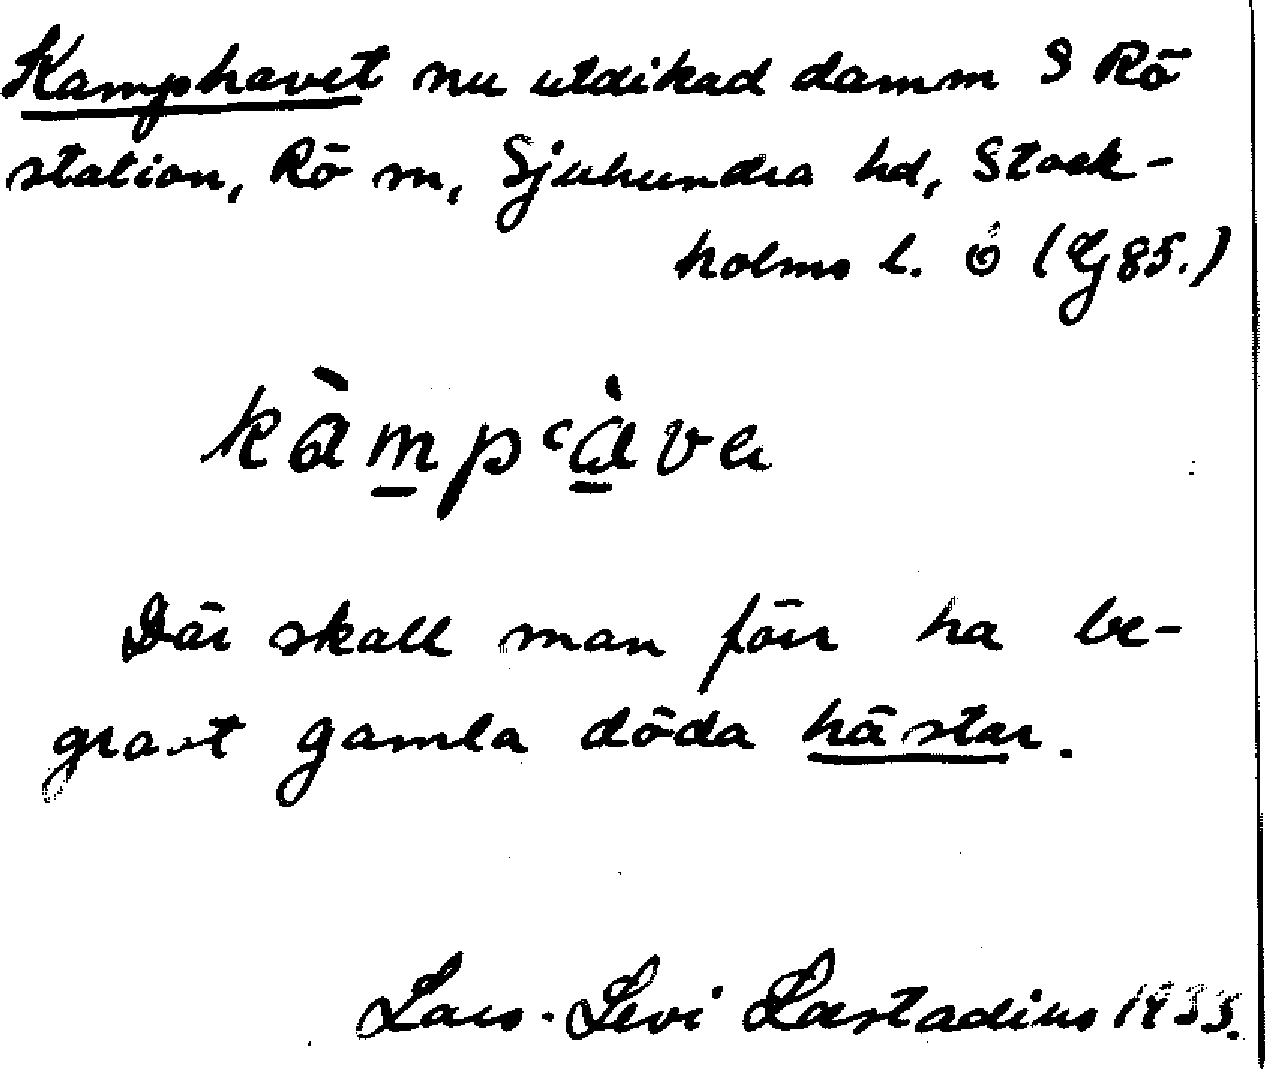 Kamphavet nu utdikad damm S Rö
station, Rö sn, Sjuhundra hd, Stock-
holms l. ö (G 85.)
kàmpʿàva
Där skall man förr ha be-
gravt gamla döda hästar.
Lars-Levi Læstadius 1935.